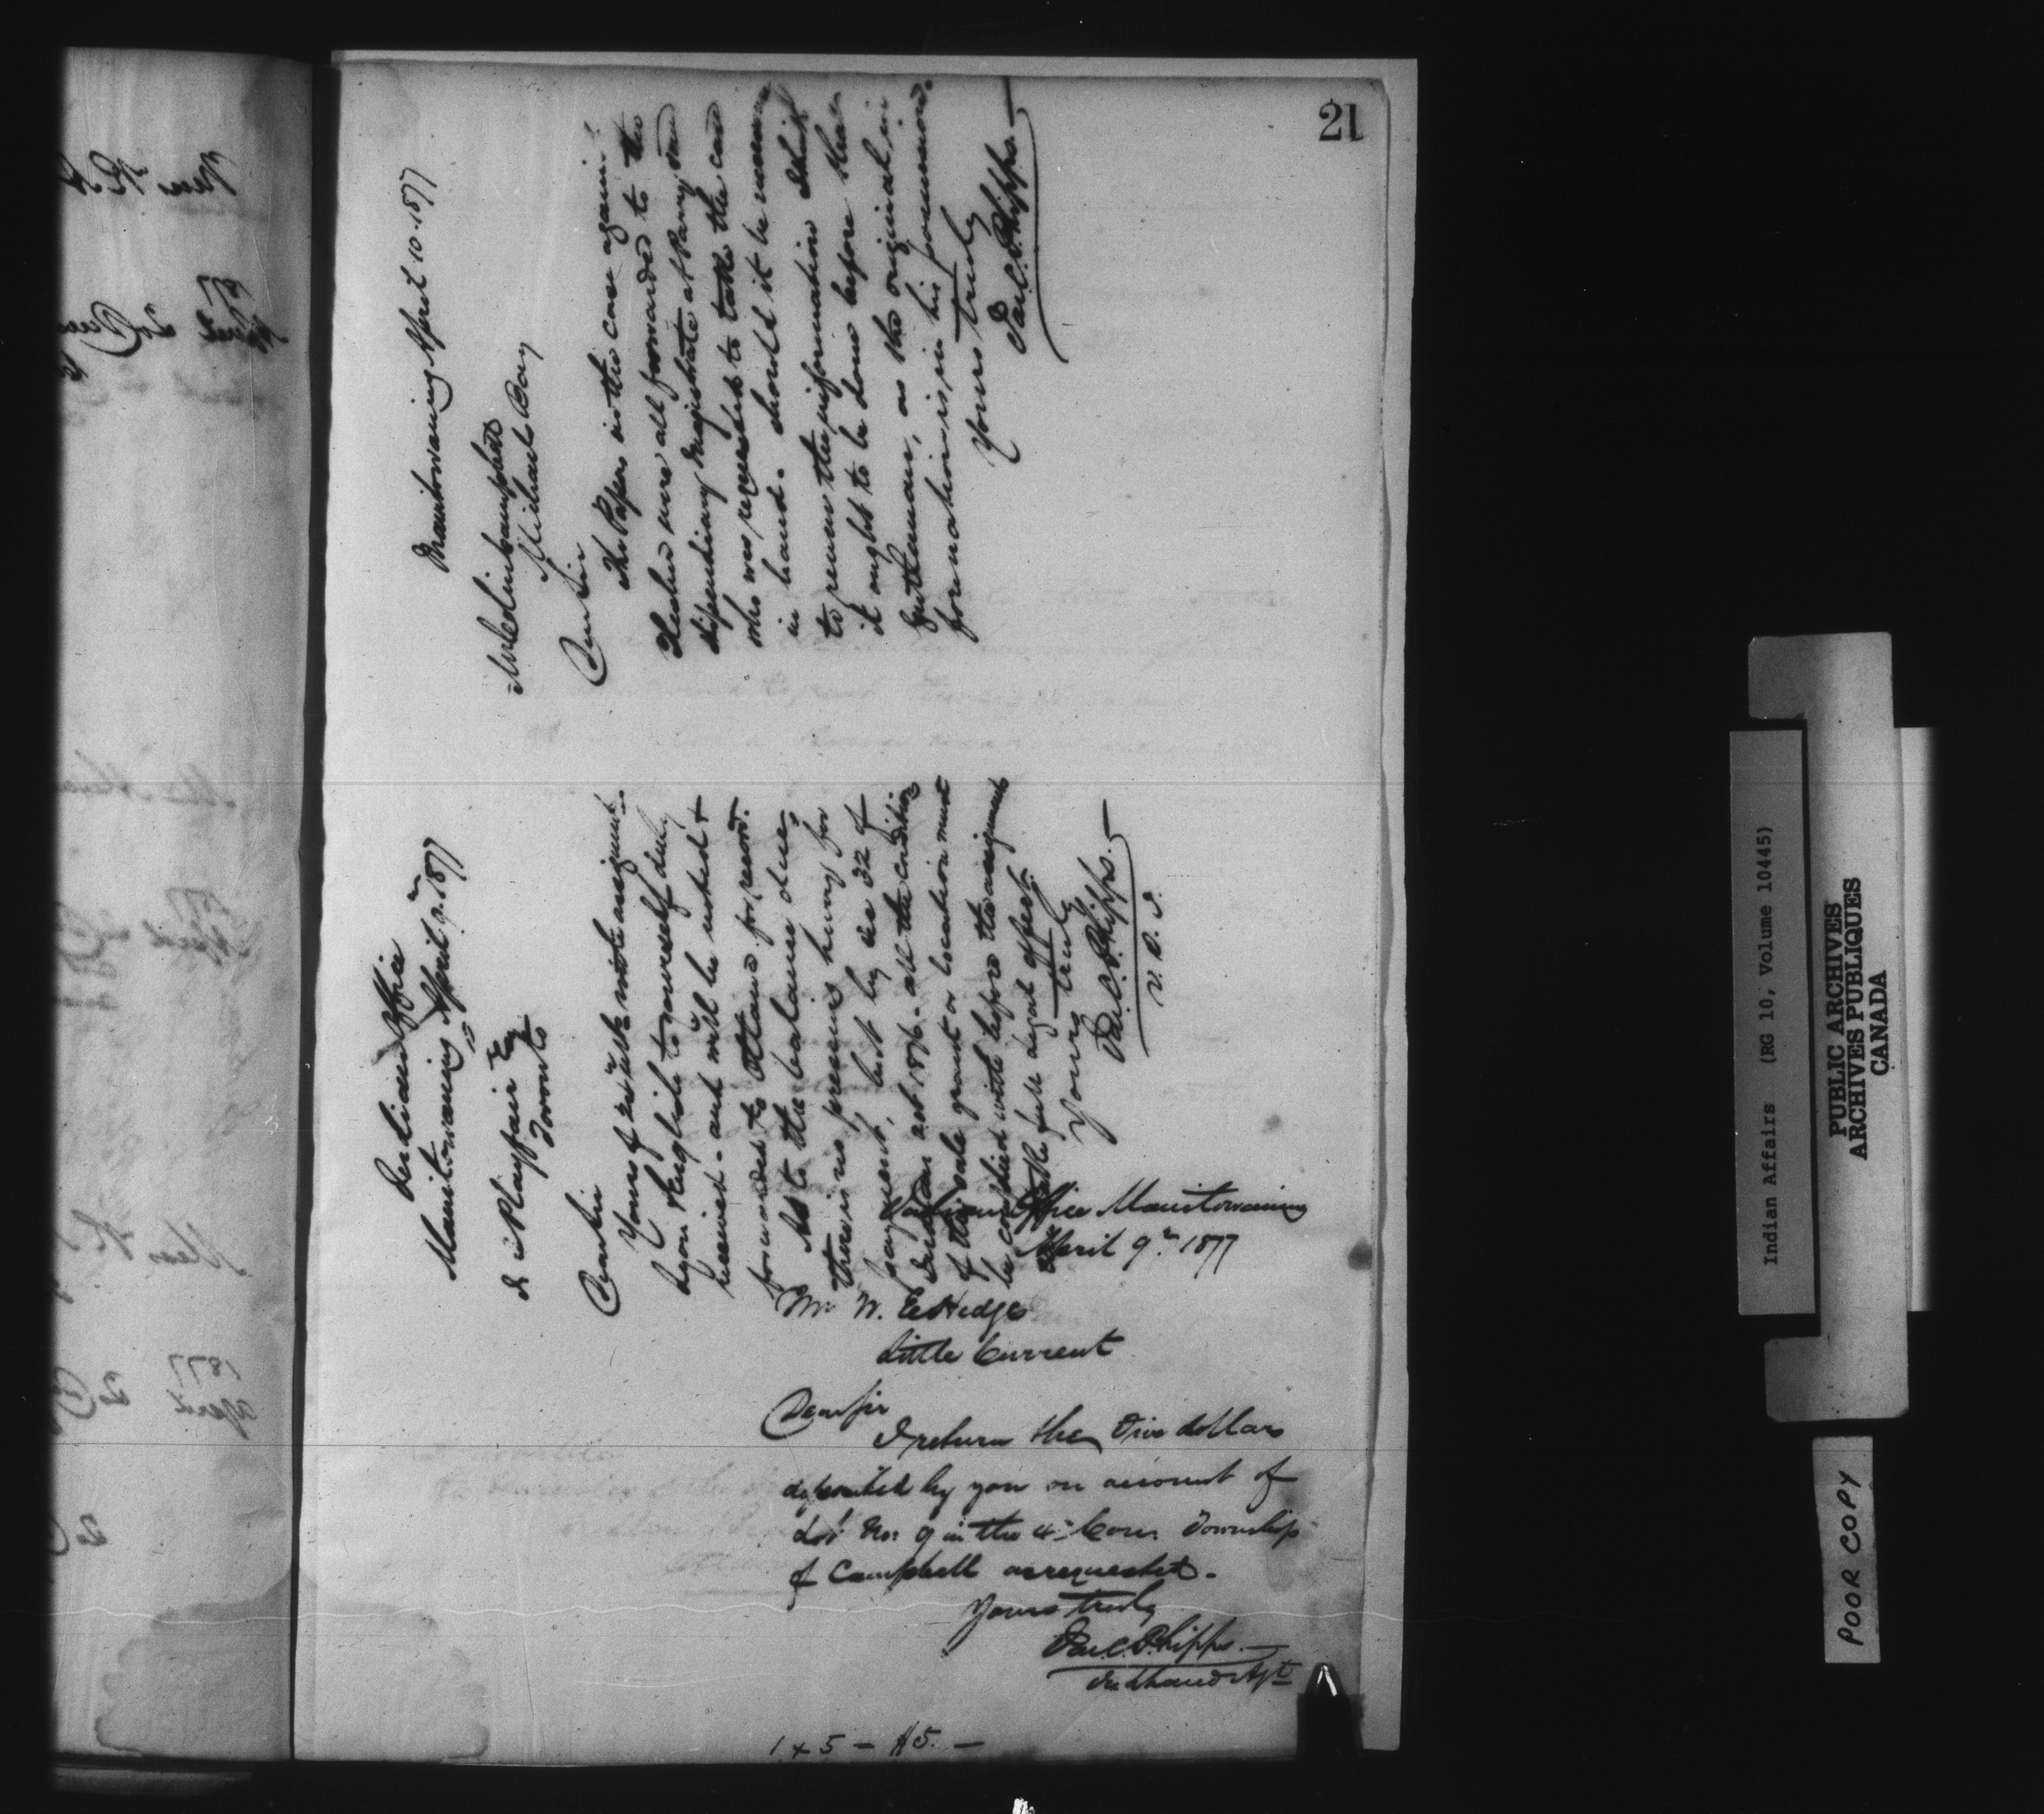 21
Manitowaning April 10. 1877
Michael Bay
Dear Sir
The Papers in the case again
were all forwarded to the
Stipendiary Magistrate at Parry Sound
who was requested to take the case
in hand. Should it be necessary
to renew the information I think
it ought to be done before
as the original in
formation is in his possession.
Yours truly
Jas. C. Phipps.
Indian Office
Manitowaning April 9th 1877
Playfair Esq
Toronto
Dear Sir
Yours of with assignment
English to yourself duly
received - and will be noted &
forwarded to Ottawa for record.
As to the balance due,
there is no present hurry for
payment, but by sec 32 of
Indian act 1876 - all the conditions
of the sale grant or location must
be complied with before the assignment
take full legal effect.
Yours truly
Jas. C. Phipps.
V. S. I.
Indian Office Manitowaning
April 9th 1877
Mr W. E. Hedge
Little Current
Dear Sir
I return the Five dollars
deposited by you on account of
Lot No: 9 in the 4th Con. Township
of Campbell as requested.
Yours truly
Jas. C. Phipps.
Ind Land Agt
1 x 5 - $5. -
Indian Affairs (RG 10, Volume 10445)
PUBLIC ARCHIVES
ARCHIVES PUBLIQUES
CANADA
POOR COPY